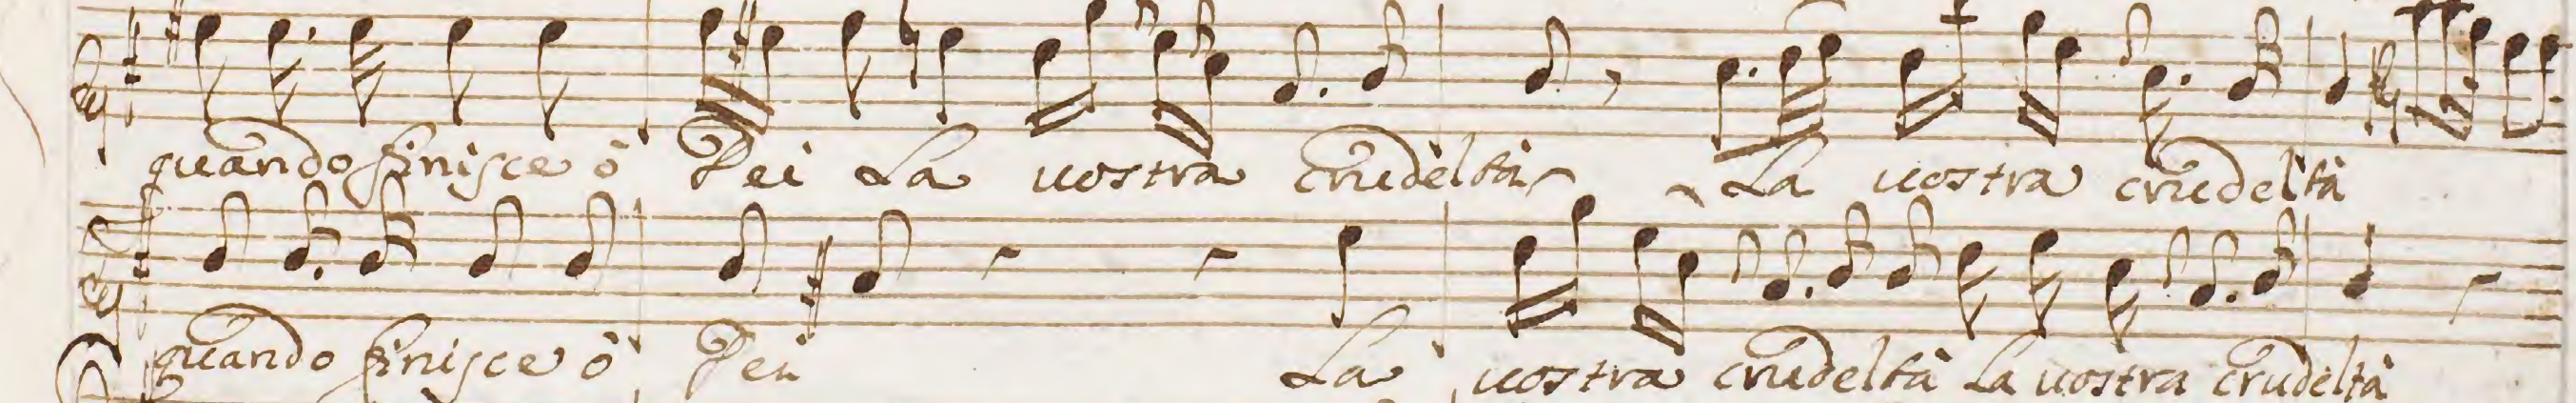 quando finisce ò Dei La vostra crudeltà La vostra crudeltà
quando finisce ò Dei La vostra crudeltà La vostra crudeltà